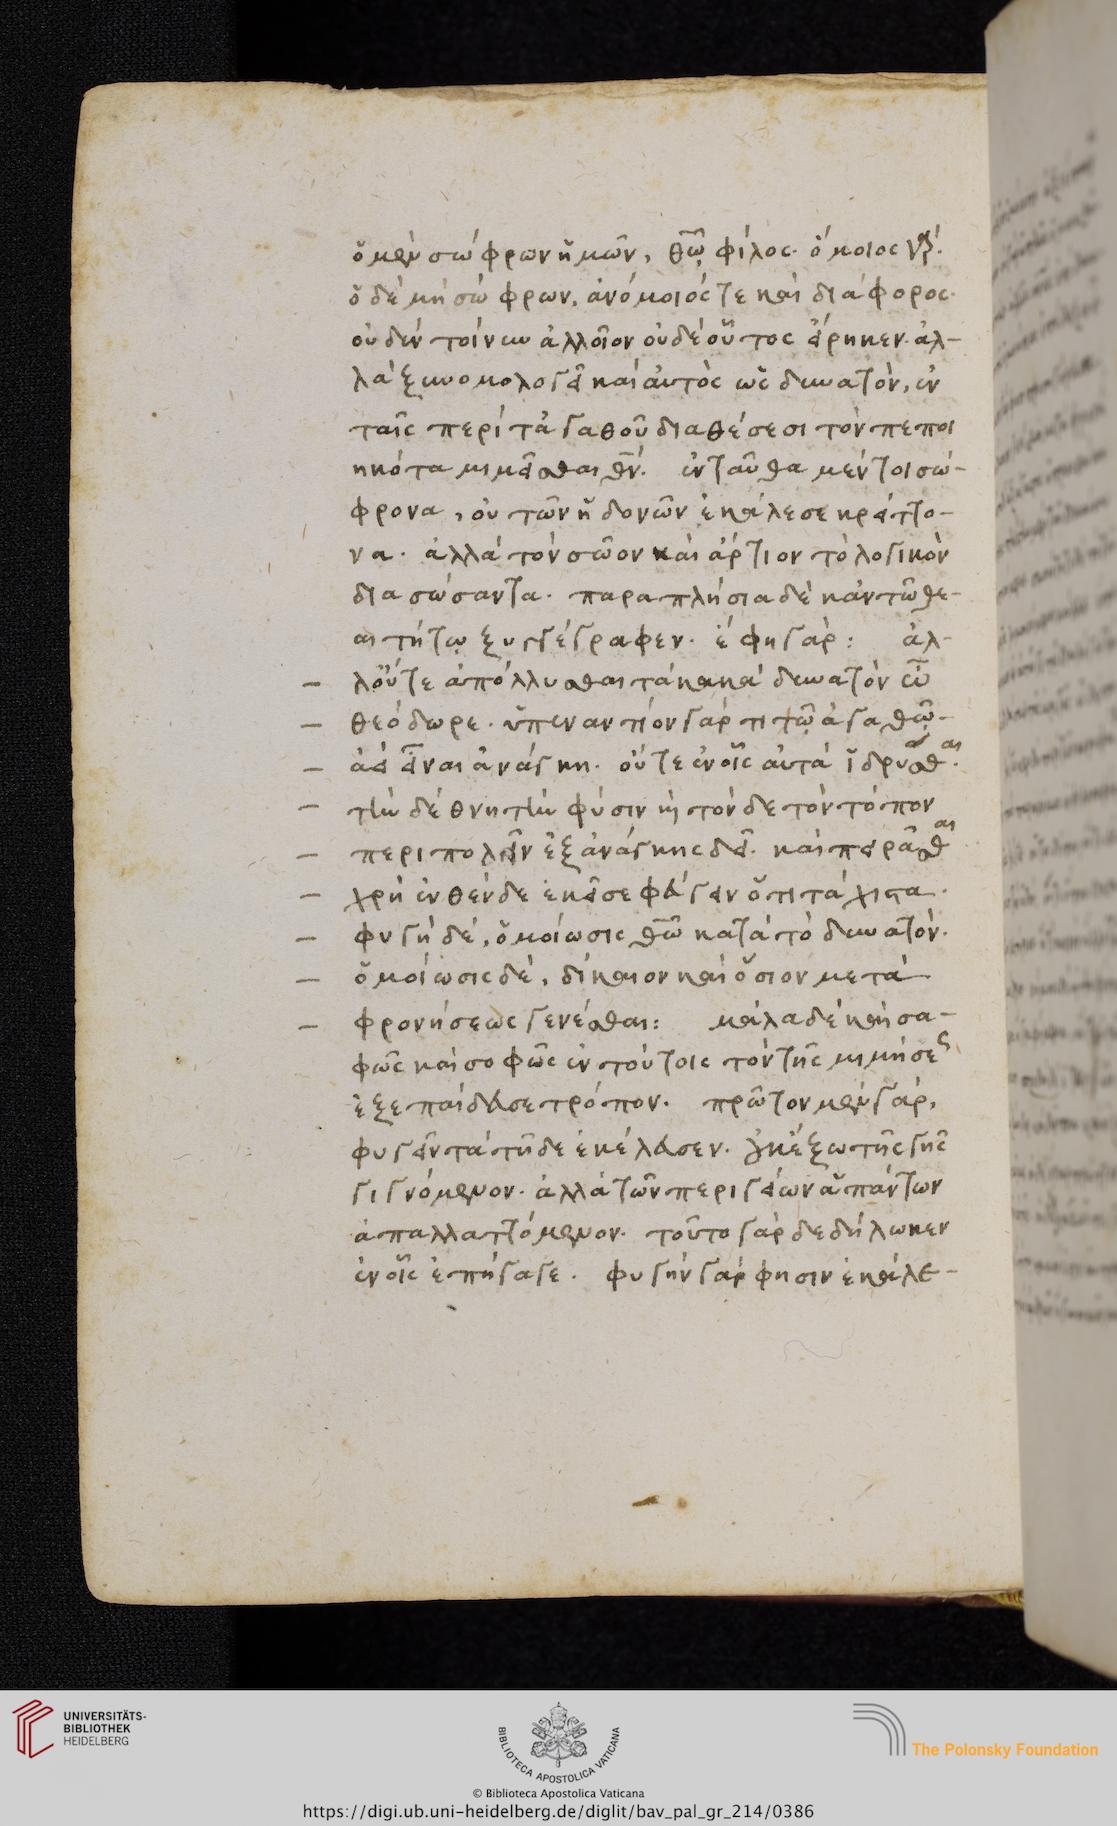 ὁ μὲν σώφρων ἡμῶν, θῶ φίλος· ὅμοιος γάρ.
ὁ δὲ μὴ σώφρων, ἀνόμοιός τε καὶ διάφορος·
οὐδὲν τοίνυν ἀλλοῖον οὐδὲ οὗτος εἴρηκεν· ἀλ-
λὰ ξυνομολογεῖ καὶ αὐτὸς ὡς δυνατὸν, ἐν
ταῖς περὶ τἀγαθοῦ διαθέσεσι τὸν πεποι
ηκότα μιμεῖσθαι θν. ἐνταῦθα μέντοι σώ-
φρονα, οὐ τῶν ἡδονῶν ἐκάλεσε κρείττο-
να· ἀλλὰ τὸν σῶον καὶ ἄρτιον τὸ λογικὸν
διασώσαντα· παραπλήσια δὲ κἀν τῶ θε-
αιτήτῳ ξυγγέγραφεν· ἔφη γάρ: ἀλ-
λ' οὔτε ἀπόλλυσθαι τὰ κακὰ δυνατὸν ὦ
θεόδωρε· ὑπεναντίον γάρ τι τῷ ἀγαθῷ-
ἀεὶ εἶναι ἀνάγκη· οὔτε ἐν θοῖς αὐτὰ ἱδρύσθαι.
τὴν δὲ θνητὴν φύσιν καὶ τόνδε τὸν τόπον
περιπολεῖν ἐξ ἀνάγκης δεῖ· καὶ πειρᾶσθαι
χρὴ ἐνθένδε ἐκεῖσε φεύγειν ὅτι τάχιστα·
φυγὴ δὲ, ὁμοίωσις θῶ κατὰ τὸ δυνατόν·
ὁμοίωσις δὲ, δίκαιον καὶ ὅσιον μετὰ
φρονήσεως γενέσθαι: μάλα δὲ καὶ σα-
φῶς καὶ σοφῶς ἐν τούτοις τὸν τῆς μιμήσεως
ἐξεπαίδευσε τρόπον· πρῶτον μὲν γάρ,
φυγεῖν τὰ τῇδε ἐκέλευσεν· οὐκ ἔξω τῆς γῆς
γιγνόμενον· ἀλλὰ τῶν περιγείων ἁπάντων
ἀπαλλαττόμενον· τοῦτο γὰρ δεδήλωκεν
ἐν οἷς ἐπήγαγε· φυγὴν γάρ φησιν ἐκάλε-
UNIVERSITÄTS-
BIBLIOTHEK
HEIDELBERG
BIBLIOTECA APOSTOLICA VATICANA
The Polonsky Foundation
© Biblioteca Apostolica Vaticana
https://digi.ub.uni-heidelberg.de/diglit/bav_pal_gr_214/0386